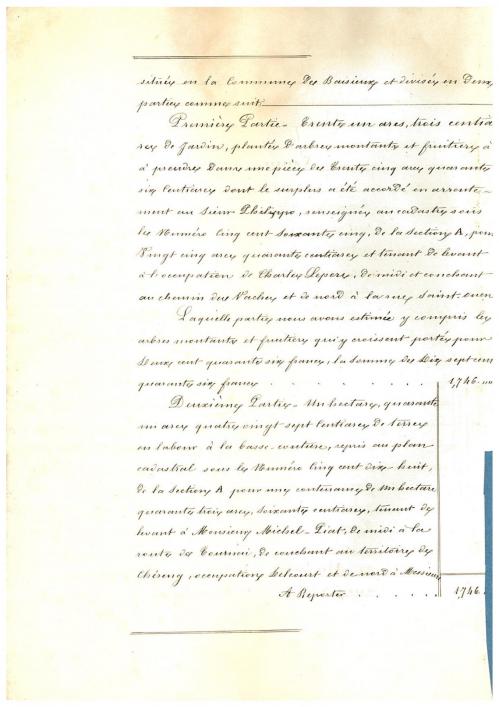 située en la Commune de Baisieux et divisée en Deux
parties comme suit.
Première Partie - Trente un ares, trois centia
res de Jardin, plantés D'arbres montants et fruitiers à
à prendre Dans une pièce de Trente cinq ares quarante
six Centiares dont le surplus a été accordé en arrente-
ment au Sieur Philippo, renseignée au cadastre sous
le Numéro Cinq cent soixante cinq, de la Section A, pour
Vingt cinq ares quarante centiares et tenant de levant
à l'occupation de Charles Lepers, de midi et couchant
au chemin des Vaches et de nord à la rue Saint-ouen
Laquelle partie nous avons estimée y compris les
arbres montants et fruitiers qui y croissent portés pour
Deux cent quarante six francs, la somme de Dix sept cent
quarante six francs . . . . . . . 1,746.
Deuxième Partie - Un hectare, quarante
un ares quatre vingt sept Centiares de terre
en labour à la basse-couture, repris au plan
cadastral sous le Numéro Cinq cent dix huit,
de la Section A pour une contenance de Un hectare
quarante trois ares, soixante centiares, tenant de
levant à Monsieur Michel-Piat, de midi à la
route de Tournai, de couchant au territoire de
Chéreng, occupation Delcourt et de nord à Messieurs
A Reporter . . . . . 1,746.